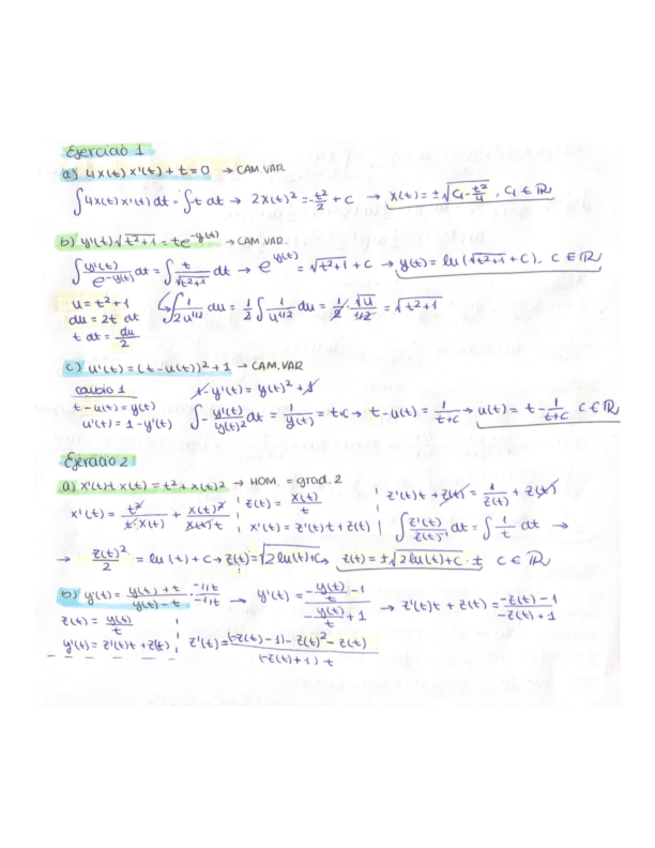 Ejercicio 1
a) 4x(t)x'(t)+t=0 → CAM.VAR
∫4x(t)x'(t)dt = ∫-t dt → 2x(t)² = -t²/2 + c → x(t) = ±√(C₁ - t²/4), C₁ ∈ ℝ
b) y'(t)√(t²+1) = te^(-y(t)) → CAM.VAR
∫ y'(t)/e^(-y(t)) dt = ∫ t/√(t²+1) dt → e^(y(t)) = √(t²+1) + c → y(t) = ln(√(t²+1) + C), C ∈ ℝ
u = t²+1
du = 2t dt
t dt = du/2
↳ ∫ 1/(2u^(1/2)) du = 1/2 ∫ 1/u^(1/2) du = 1/2 · √u/(1/2) = √(t²+1)
c) u'(t) = (t-u(t))² + 1 → CAM.VAR
cambio 1
t-u(t) = y(t)
u'(t) = 1-y'(t)
1-y'(t) = y(t)² + 1
∫ - y'(t)/y(t)² dt = 1/y(t) = t+c → t-u(t) = 1/(t+c) → u(t) = t - 1/(t+c) C ∈ ℝ
Ejercicio 2
a) x'(t)t x(t) = t² + x(t)² → HOM. = grad. 2
x'(t) = t²/(t·x(t)) + x(t)²/(x(t)t)
z(t) = x(t)/t
x'(t) = z'(t)t + z(t)
z'(t)t + z(t) = 1/z(t) + z(t)
∫ z'(t)/z(t)⁻¹ dt = ∫ 1/t dt →
→ z(t)²/2 = ln(t) + C → z(t) = √(2ln(t)+C), z(t) = ±√(2ln(t)+C) · t C ∈ ℝ
b) y'(t) = (y(t)+t)/(y(t)-t) · (-1/t)/(-1/t) → y'(t) = (-y(t)/t - 1)/(-y(t)/t + 1) → z'(t)t + z(t) = (-z(t)-1)/(-z(t)+1)
z(t) = y(t)/t
y'(t) = z'(t)t + z(t)
z'(t) = ((-z(t)-1) - z(t)² - z(t))/((-z(t)+1)t)